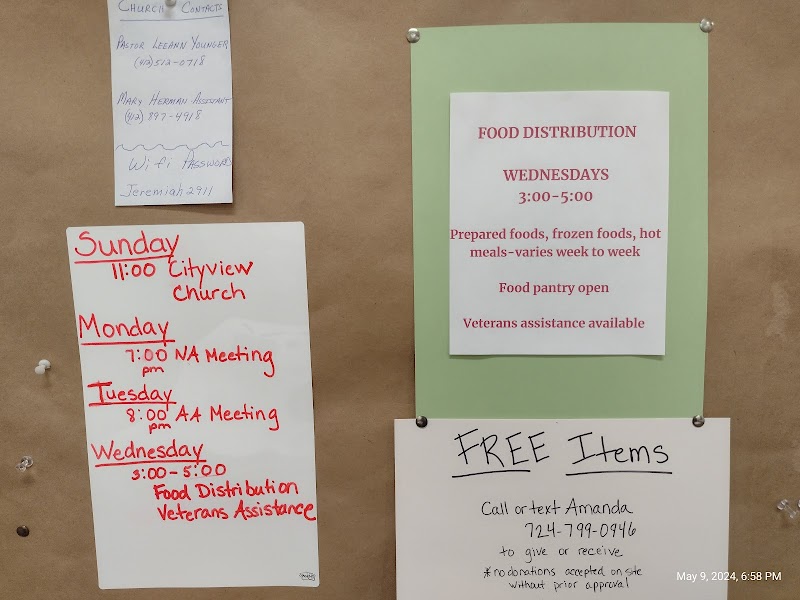 CHURCH CONTACTS
PASTOR LEEANN YOUNGER
(412) 512-0718
MARY HERMAN ASSISTANT
(412) 897-4918
Wifi PASSWORD
Jeremiah2911
Sunday
11:00 Cityview
Church
Monday
7:00 NA Meeting
pm
Tuesday
8:00 AA Meeting
pm
Wednesday
3:00-5:00
Food Distribution
Veterans Assistance
FOOD DISTRIBUTION
WEDNESDAYS
3:00-5:00
Prepared foods, frozen foods, hot
meals-varies week to week
Food pantry open
Veterans assistance available
FREE Items
Call or text Amanda
724-799-0946
to give or receive
*no donations accepted on site
without prior approval
May 9, 2024, 6:58 PM